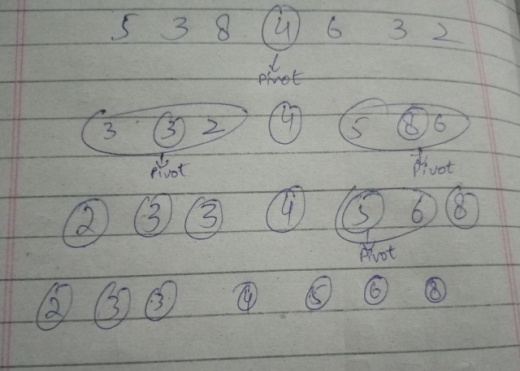 5 3 8 4 6 3 2
Pivot
3 3 2 4 5 8 6
Pivot Pivot
2 3 3 4 5 6 8
Pivot
2 3 3 4 5 6 8